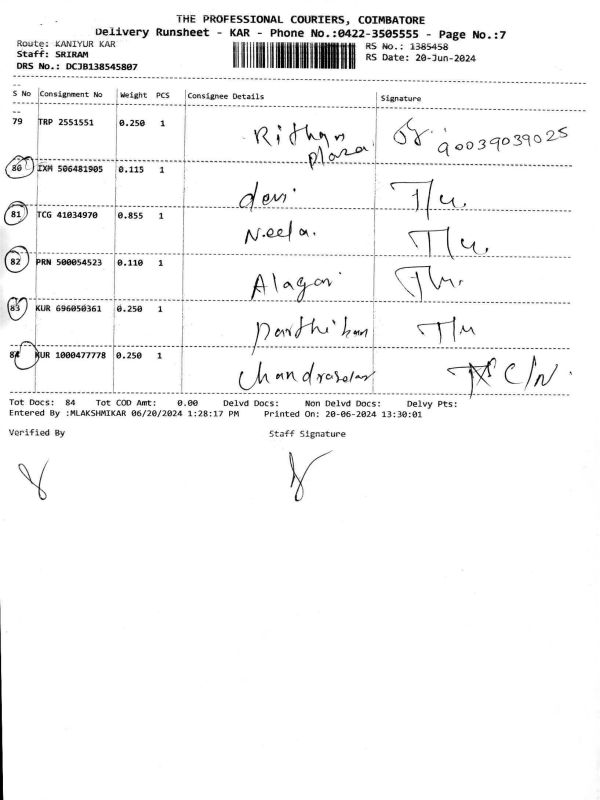 THE PROFESSIONAL COURIERS, COIMBATORE
Delivery Runsheet - KAR - Phone No.:0422-3505555 - Page No.:7
Route: KANIYUR KAR RS No.: 1385458
Staff: SRIRAM RS Date: 20-Jun-2024
DRS No.: DCJB138545807
S No Consignment No Weight PCS Consignee Details Signature
79 TRP 2551551 0.250 1 Rithan plaza 90039039025
80 IXM 506481905 0.115 1 devi T/u.
81 TCG 41034970 0.855 1 Neela. T/u.
82 PRN 500054523 0.110 1 Alagari T/u.
83 KUR 696050361 0.250 1 Parthiban T/u
84 KUR 1000477778 0.250 1 C/N.
Tot Docs: 84 Tot COD Amt: 0.00 Delvd Docs: Non Delvd Docs: Delvy Pts:
Entered By :MLAKSHMIKAR 06/20/2024 1:28:17 PM Printed On: 20-06-2024 13:30:01
Verified By Staff Signature